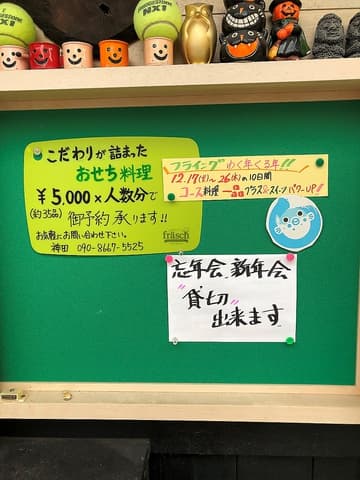 BRIDGESTONE
NX1
こだわりが詰まった
おせち料理
¥5,000×人数分で
(約35品) 御予約 承ります!!
お気軽にお問い合わせ下さい。
神田 090-8667-5525
fräsch
フライング ゆく年くる年!!
12.17(火)~26(木)の10日間
コース料理 一品プラス☆スイーツパワーUP!!
忘年会、新年会
"貸切"
出来ます